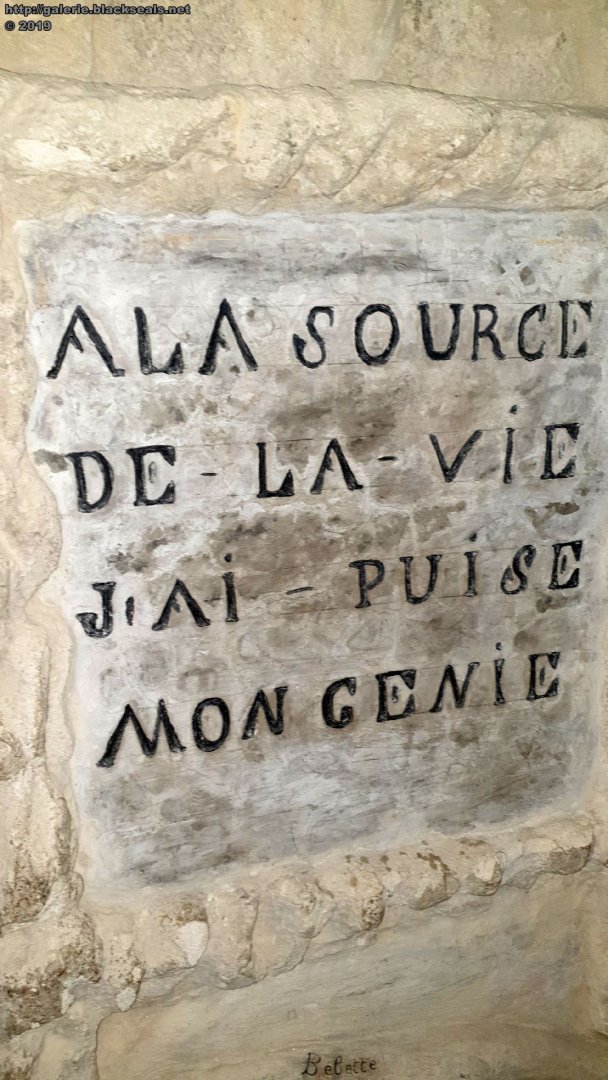 http://galerie.blackseals.net
© 2019
A LA SOURCE
DE - LA - VIE
J'AI - PUISE
MON GENIE
Bebette